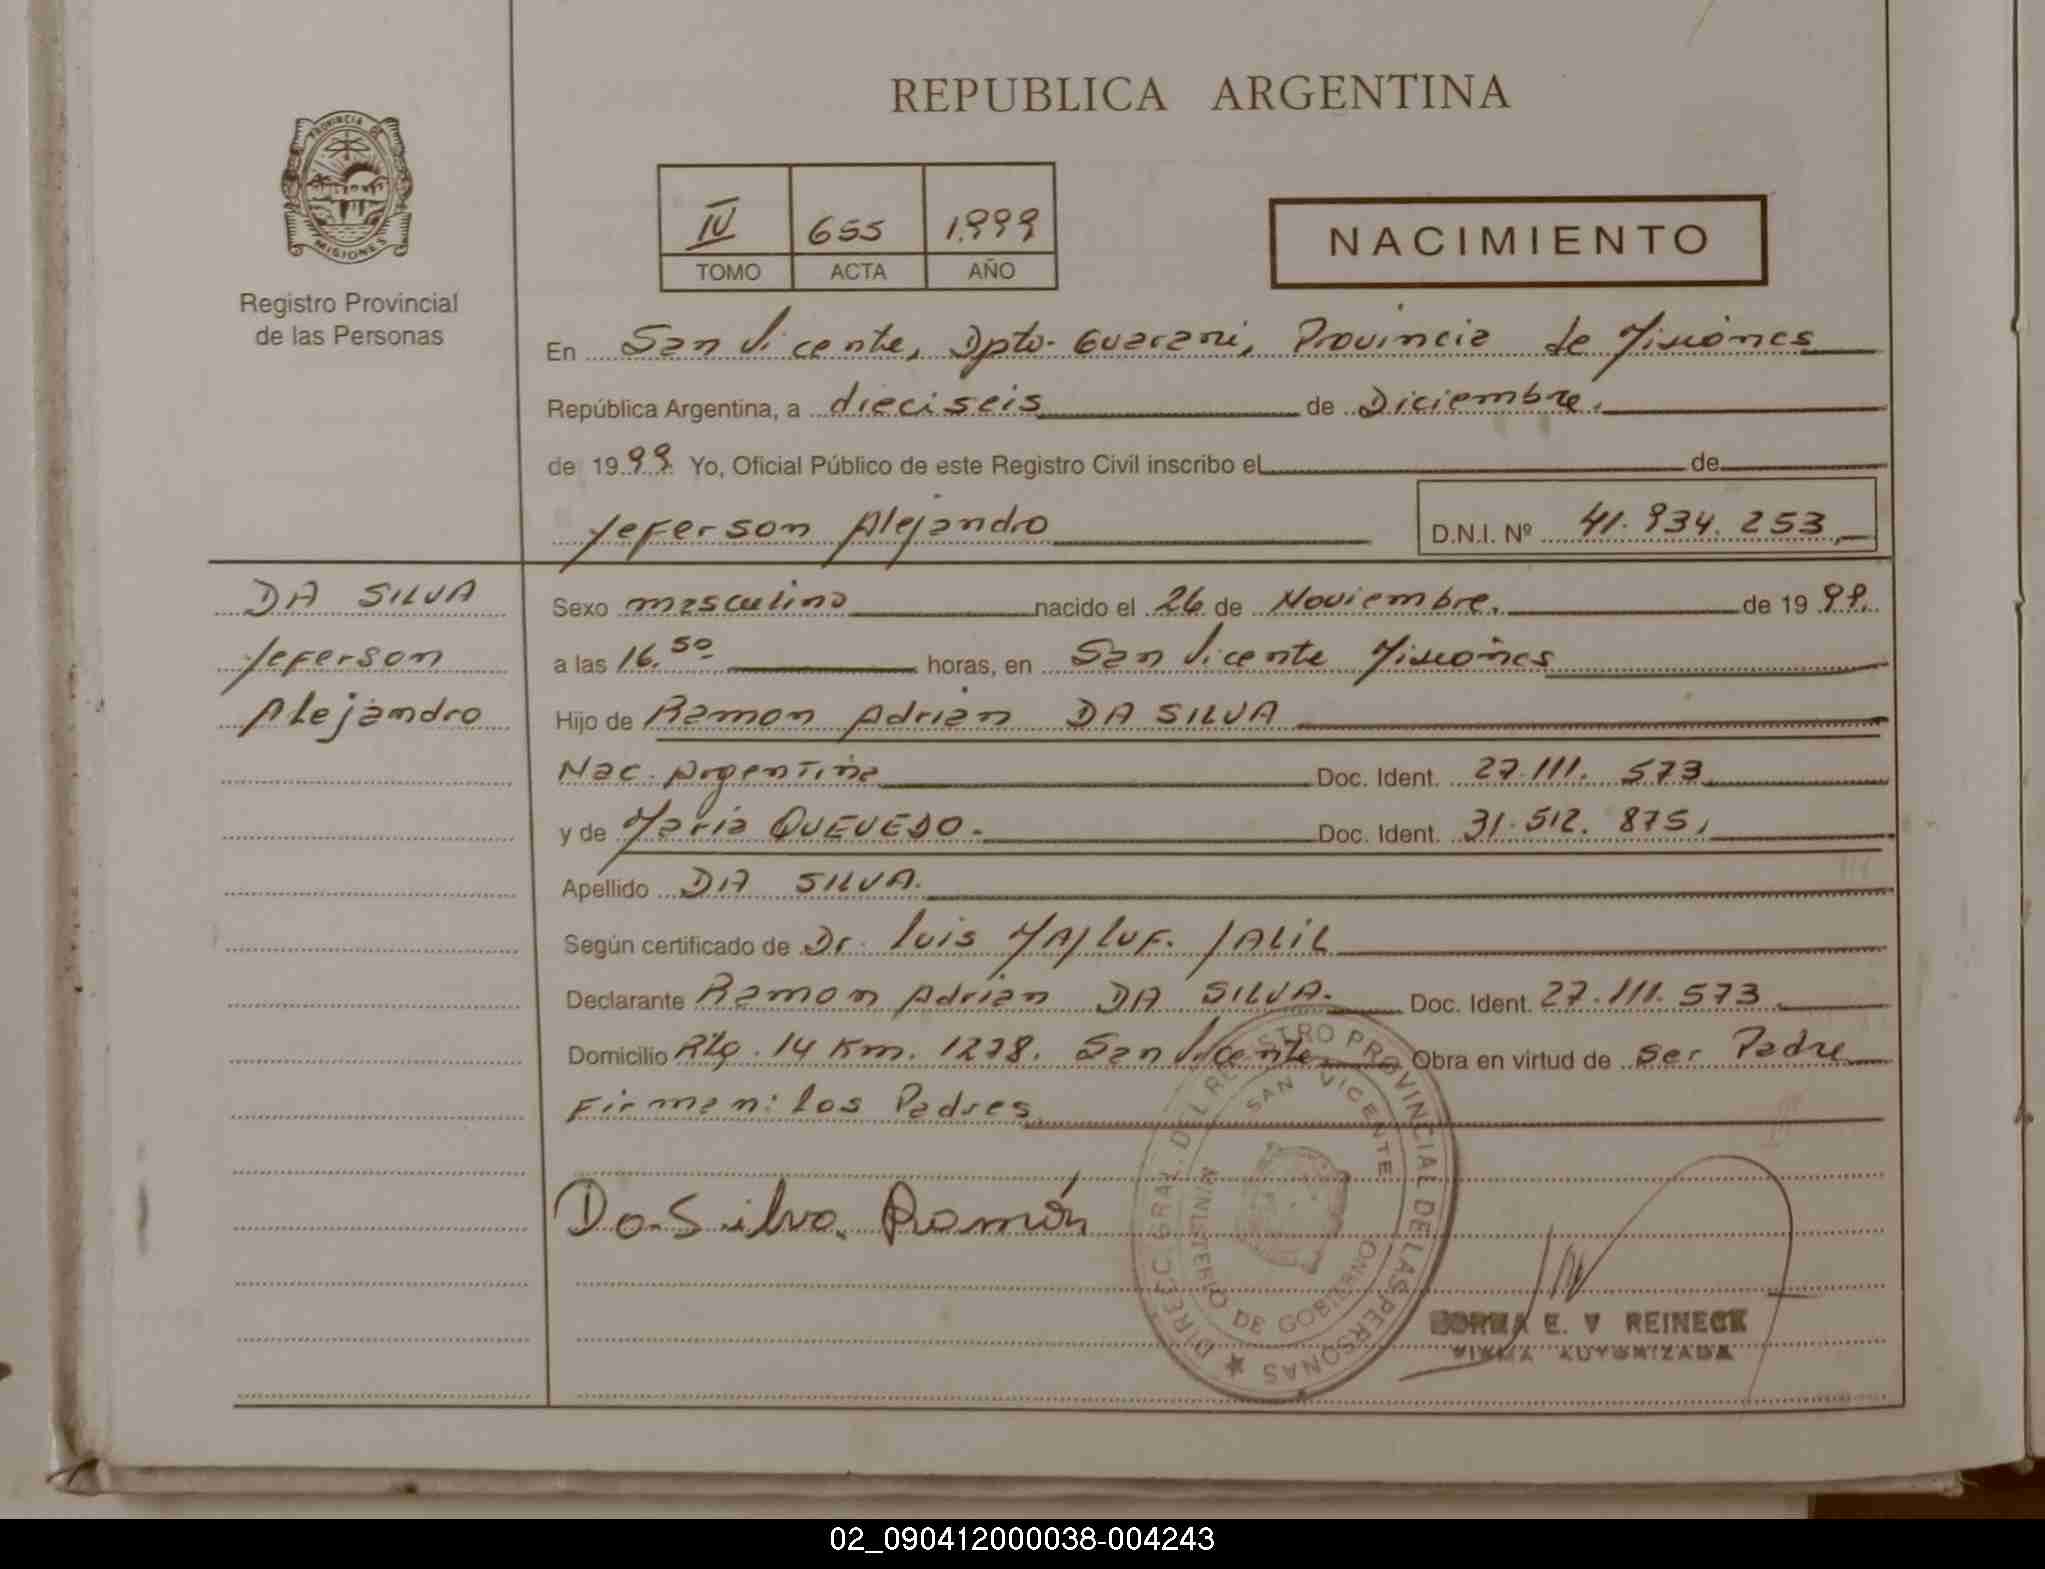 REPUBLICA ARGENTINA
PROVINCIA DE
MISIONES
Registro Provincial
de las Personas
IV 655 1.999
TOMO ACTA AÑO
NACIMIENTO
En San Vicente, Dpto. Guarani, Provincia de Misiones
República Argentina, a dieciseis de Diciembre.
de 1999. Yo, Oficial Público de este Registro Civil inscribo el de
Jeferson Alejandro D.N.I. Nº 41.934.253,
DA SILVA
Jeferson
Alejandro
Sexo masculino nacido el 26 de Noviembre. de 1999.
a las 16.50 horas, en San Vicente Misiones
Hijo de Ramon Adrian DA SILVA
Nac. Argentina Doc. Ident. 27.111.573
y de Maria QUEVEDO. Doc. Ident. 31.512.875,
Apellido DA SILVA.
Según certificado de Dr. Luis MAJLUF. JALIL
Declarante Ramon Adrian DA SILVA. Doc. Ident. 27.111.573
Domicilio Rta. 14 Km. 1278. San Vicente Obra en virtud de ser Padre
Firman: los Padres
Da Silva Ramón
DIREC. GRAL. DEL REGISTRO PROVINCIAL DE LAS PERSONAS
SAN VICENTE
MINISTERIO DE GOBIERNO
NORMA E. V REINECK
FIRMA AUTORIZADA
02_090412000038-004243